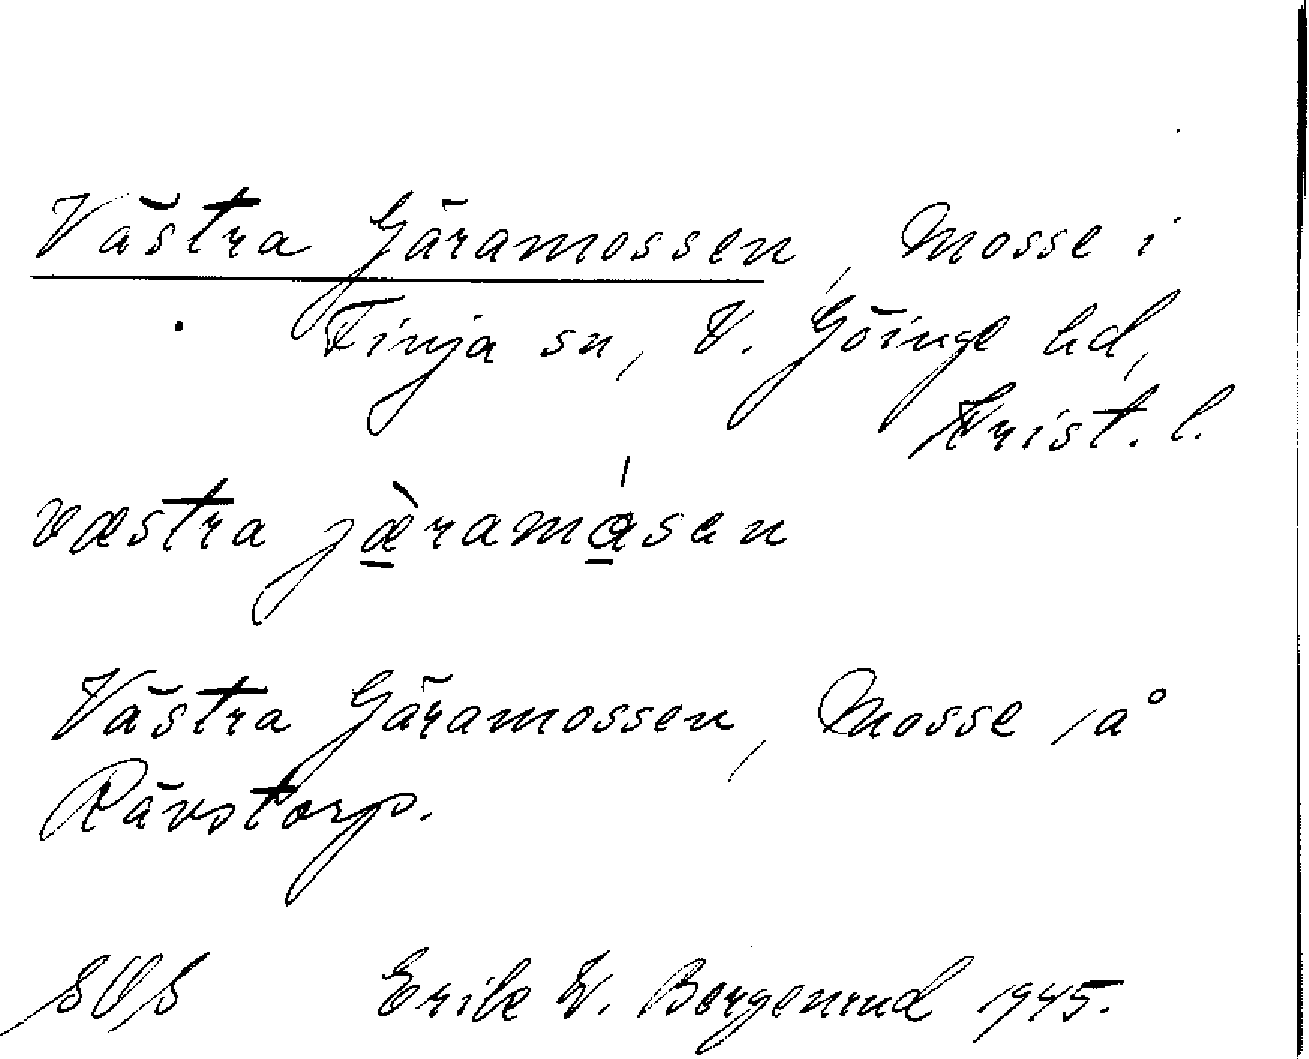 Västra Gäramossen, Mosse i
Finja sn, V. Göinge hd,
Krist. l.
væstra jæ̀ramåsen
Västra Gäramossen, Mosse å
Rävstorp.
Erik W. Bergenrud 1945.